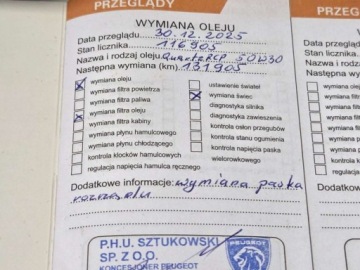 PRZEGLĄDY
PRZEGLĄDY
WYMIANA OLEJU
Data przeglądu 30.12.2025
Stan licznika 116905
Nazwa i rodzaj oleju Quartz RCP 50W30
Następna wymiana (km) 131905
wymiana oleju
wymiana filtra powietrza
wymiana filtra paliwa
wymiana filtra oleju
wymiana filtra kabiny
wymiana płynu hamulcowego
wymiana płynu chłodzącego
kontrola klocków hamulcowych
regulacja hamulca ręcznego
ustawienie świateł
wymiana świec
diagnostyka silnika
diagnostyka zawieszenia
kontrola osłon przegubów
kontrola stanu ogumienia
kontrola napięcia paska
wielorowkowego
Dodatkowe informacje: wymiana paska
rozrządu
P.H.U. SZTUKOWSKI
SP. Z O.O.
KONCESJONER PEUGEOT
PEUGEOT
W
Data
Stan
Nazwa
Następ
Dodat